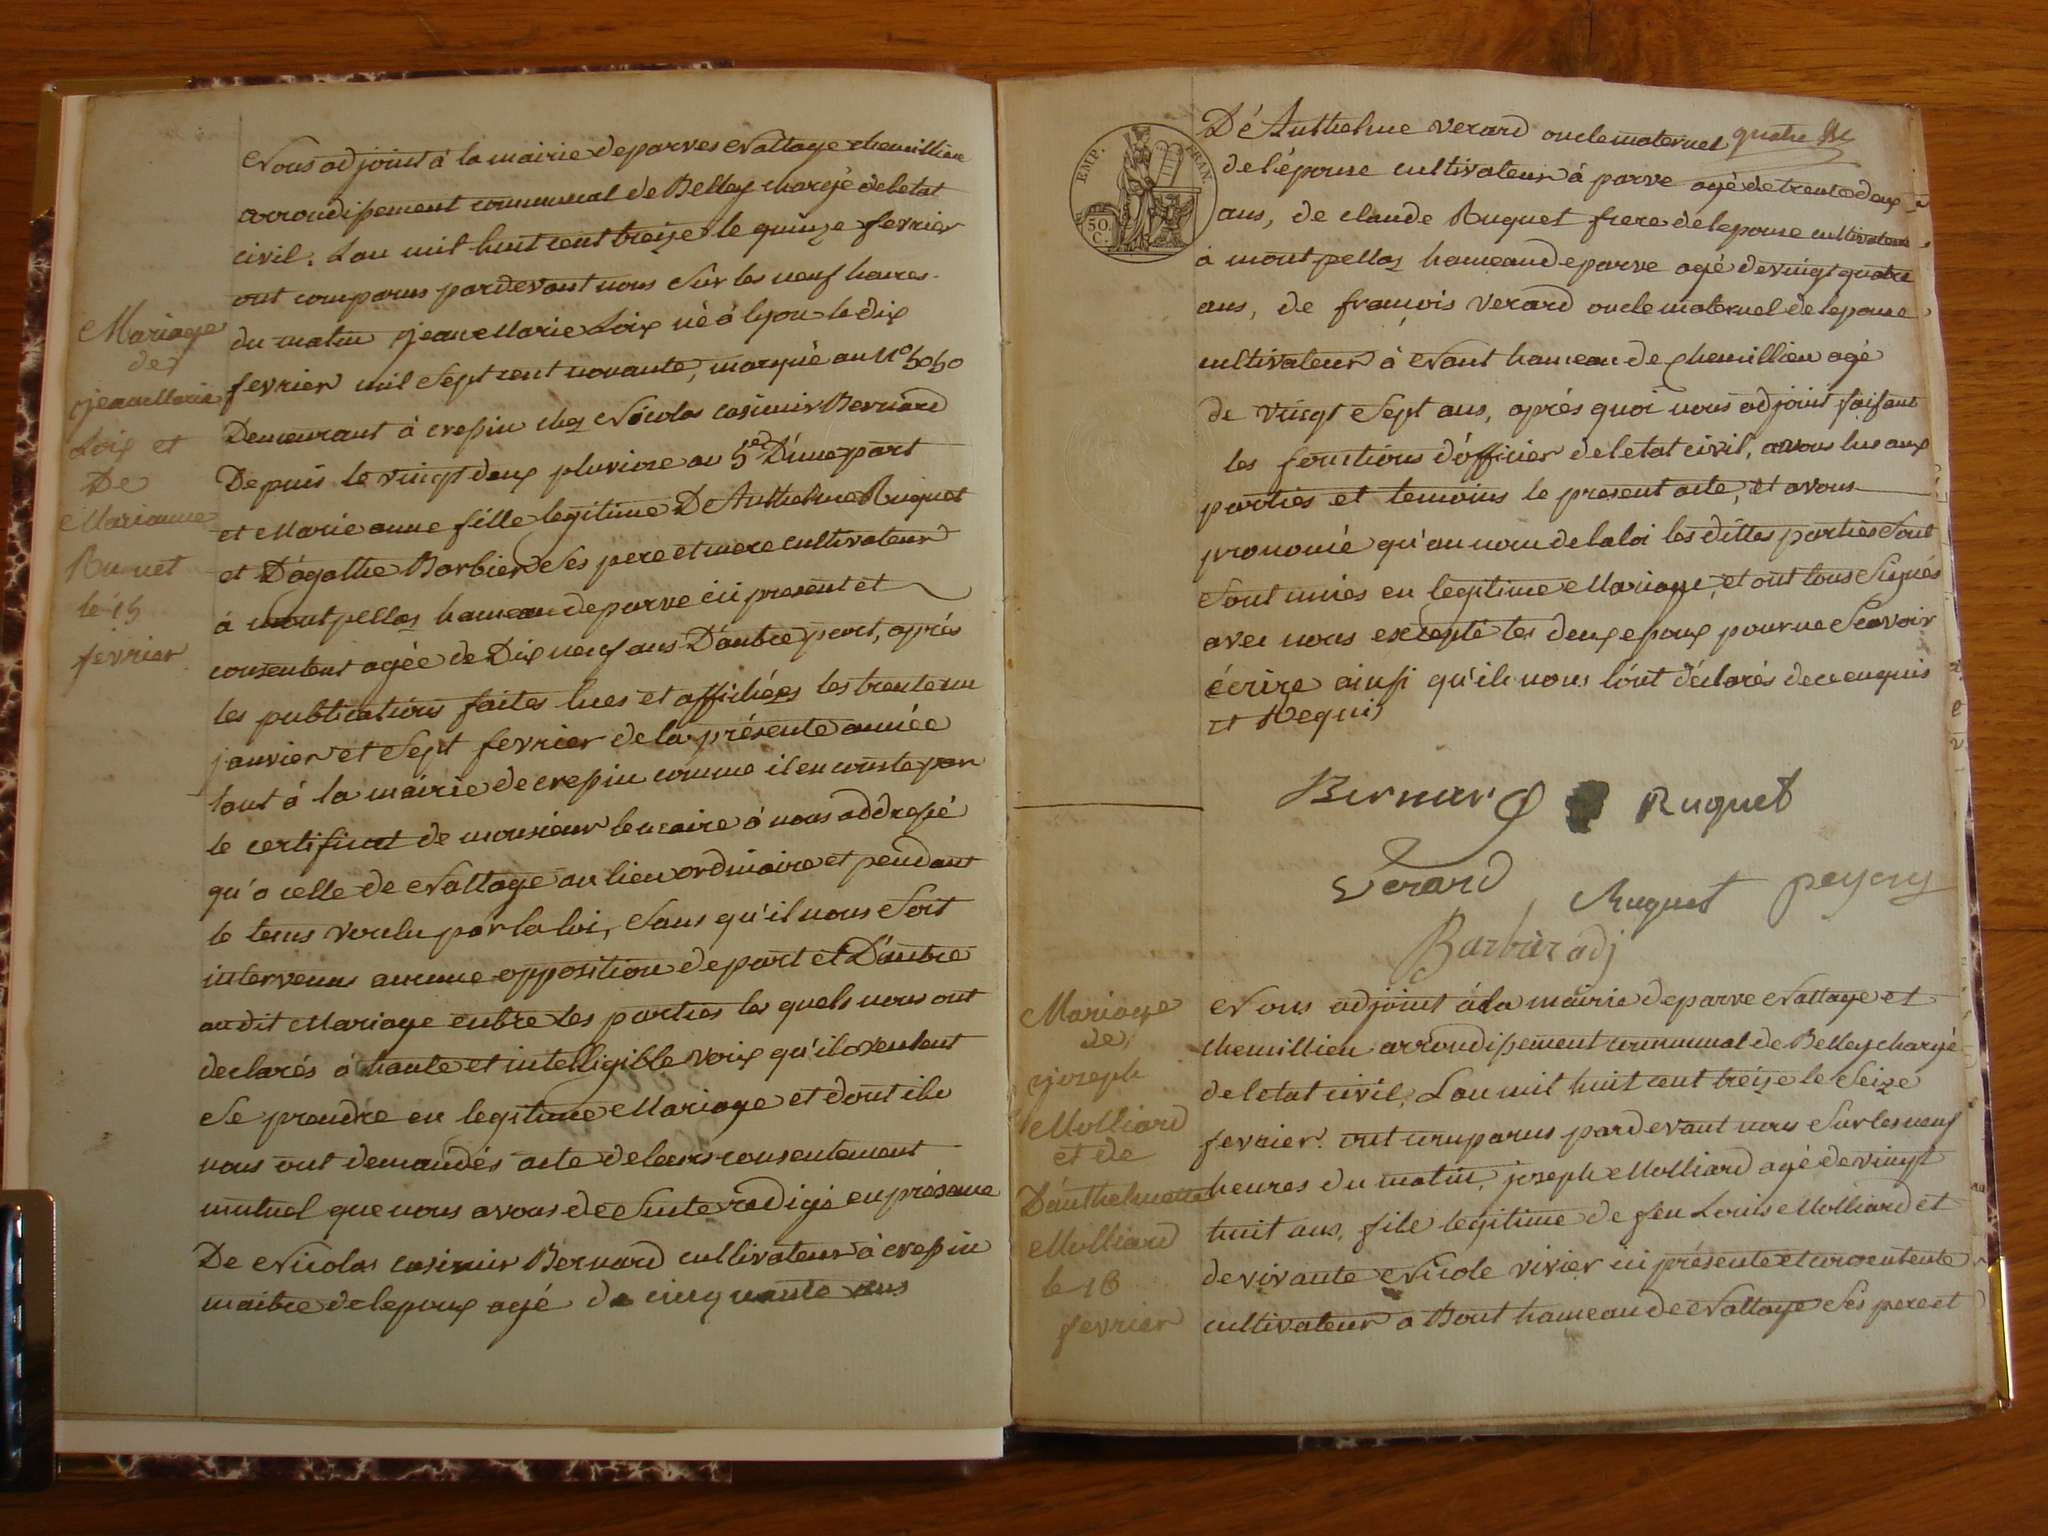 Nous adjoint à la mairie deparves Nattage chemillieu
arrondissement communal de Belley chargé deletat
civil. Lan mil huit cent treize le quinze fevrier
ont comparus pardevant nous Sur les neuf heures
du matin jean Marie Loix né à lyon le dix
fevrier mil Sept cent novante, marqué au N° 5050
Demeurant à crepin chez Nicolas casimir Bernard
Depuis le vingt deux pluviose an 5e D'unepart
et Marie anne fille legitime D'Anthelme Ruquet
et D'agathe Barbier Ses pere et mere cultivateur
à montpellas hameau deparve ici present et
consentent agée de Dix neuf ans D'autre part, aprés
les publications faites lues et affichées les trente un
janvier et Sept fevrier de la présente année
tant à la mairie de crepin comme il en conste par
le certificat de monsieur le maire à nous addressé
qu'a celle de Nattage au lieu ordinaire et pendant
le tems voulu par la loi, Sans qu'il nous Soit
intervenus aucune opposition depart et D'autre
audit Mariage entre les parties les quels nous ont
declarés à haute et intelligible voix qu'ils veulent
Se prendre en legitime Mariage et dont ils
nous ont demandés acte deleurs consentement
mutuel que nous avons de Suite redigé en présence
De Nicolas casimir Bernard cultivateur à crepin
maitre delepoux agé de cinquante ans
Mariage
de
jean Marie
Loix et
De
Marianne
Ruquet
le 15
fevrier
EMP. FRAN.
50 C.
Dé Anthelme verard oncle maternel quatre
de l'épouse cultivateur à parve agé de trente deux
ans, de claude Ruquet frere de lepouse cultivateur
à montpellaz hameau deparve agé de vingt quatre
ans, de francois verard oncle maternel de lepouse
cultivateur à Nant hameau de chemillieu agé
de vingt Sept ans, aprés quoi nous adjoint faisant
les fonctions d'officier deletat civil, avons lus aux
parties et temoins le present acte, et avons
prononcé qu'au nom de la loi les dittes parties Sont
Sont unies en legitime Mariage, et ont tous Signés
avec nous excepté les deux epoux pour ne Scavoir
écrire ainsi qu'ils nous lont déclarés de ce enquis
et Requis
Bernard Ruquet
Verard Ruquet
Barbier adj
Mariage
de
joseph
Molliard
et de
D'anthelmette
Molliard
le 16
fevrier
Nous adjoint à la mairie deparve Nattage et
chemillieu arrondissement communal de Belley chargé
deletat civil, Lan mil huit cent treize le Seize
fevrier ont comparus pardevant nous Sur les neuf
heures du matin, joseph Molliard agé de vingt
huit ans, fils legitime de feu Louis Molliard et
de vivante Nicole vivier ici présente et consentente
cultivateur a Bout hameau de Nattage Ses pere et